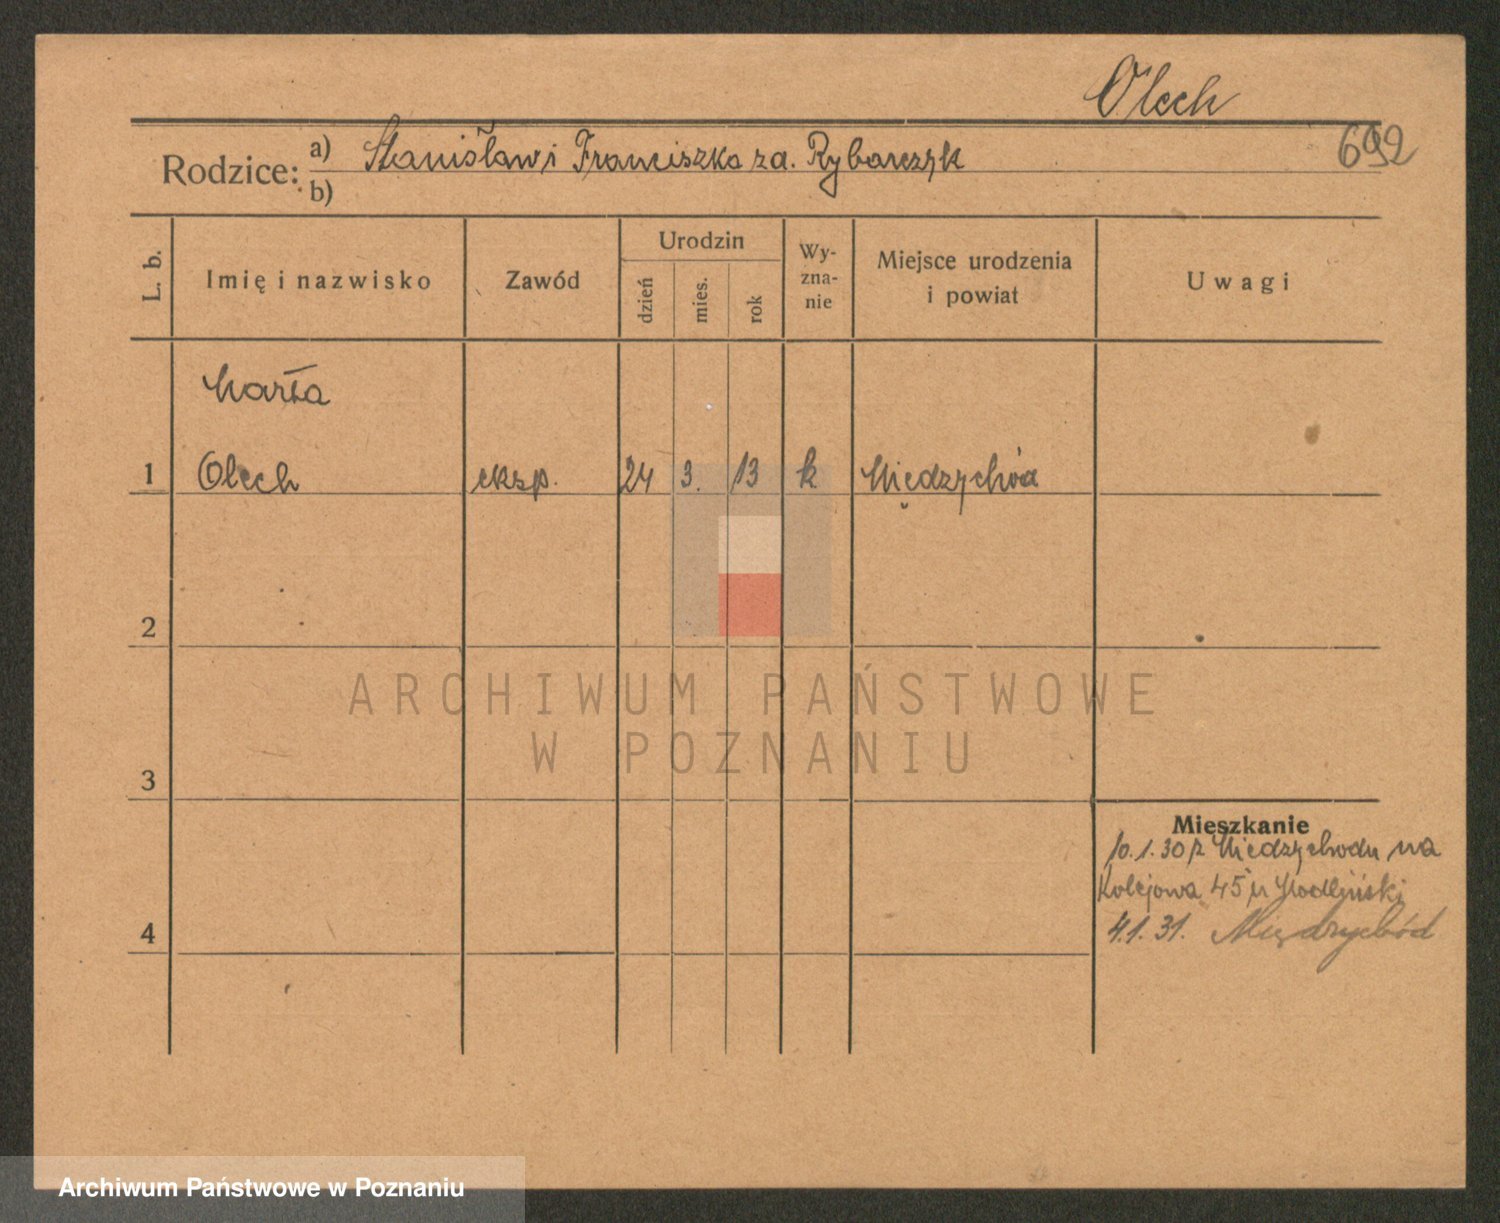 Olech
692
Rodzice: a) Stanisław i Franciszka za. Rybarczyk
b)
L. b.
Imię i nazwisko
Zawód
Urodzin
dzień
mies.
rok
Wy-
zna-
nie
Miejsce urodzenia
i powiat
Uwagi
Marta
1 Olech eksp. 24 3. 13 k Międzychód
2
ARCHIWUM PAŃSTWOWE
W POZNANIU
3
Mieszkanie
10.1.30 z Międzychodu na
Kolejowa 45
4
4.1.31. Międzychód
Archiwum Państwowe w Poznaniu